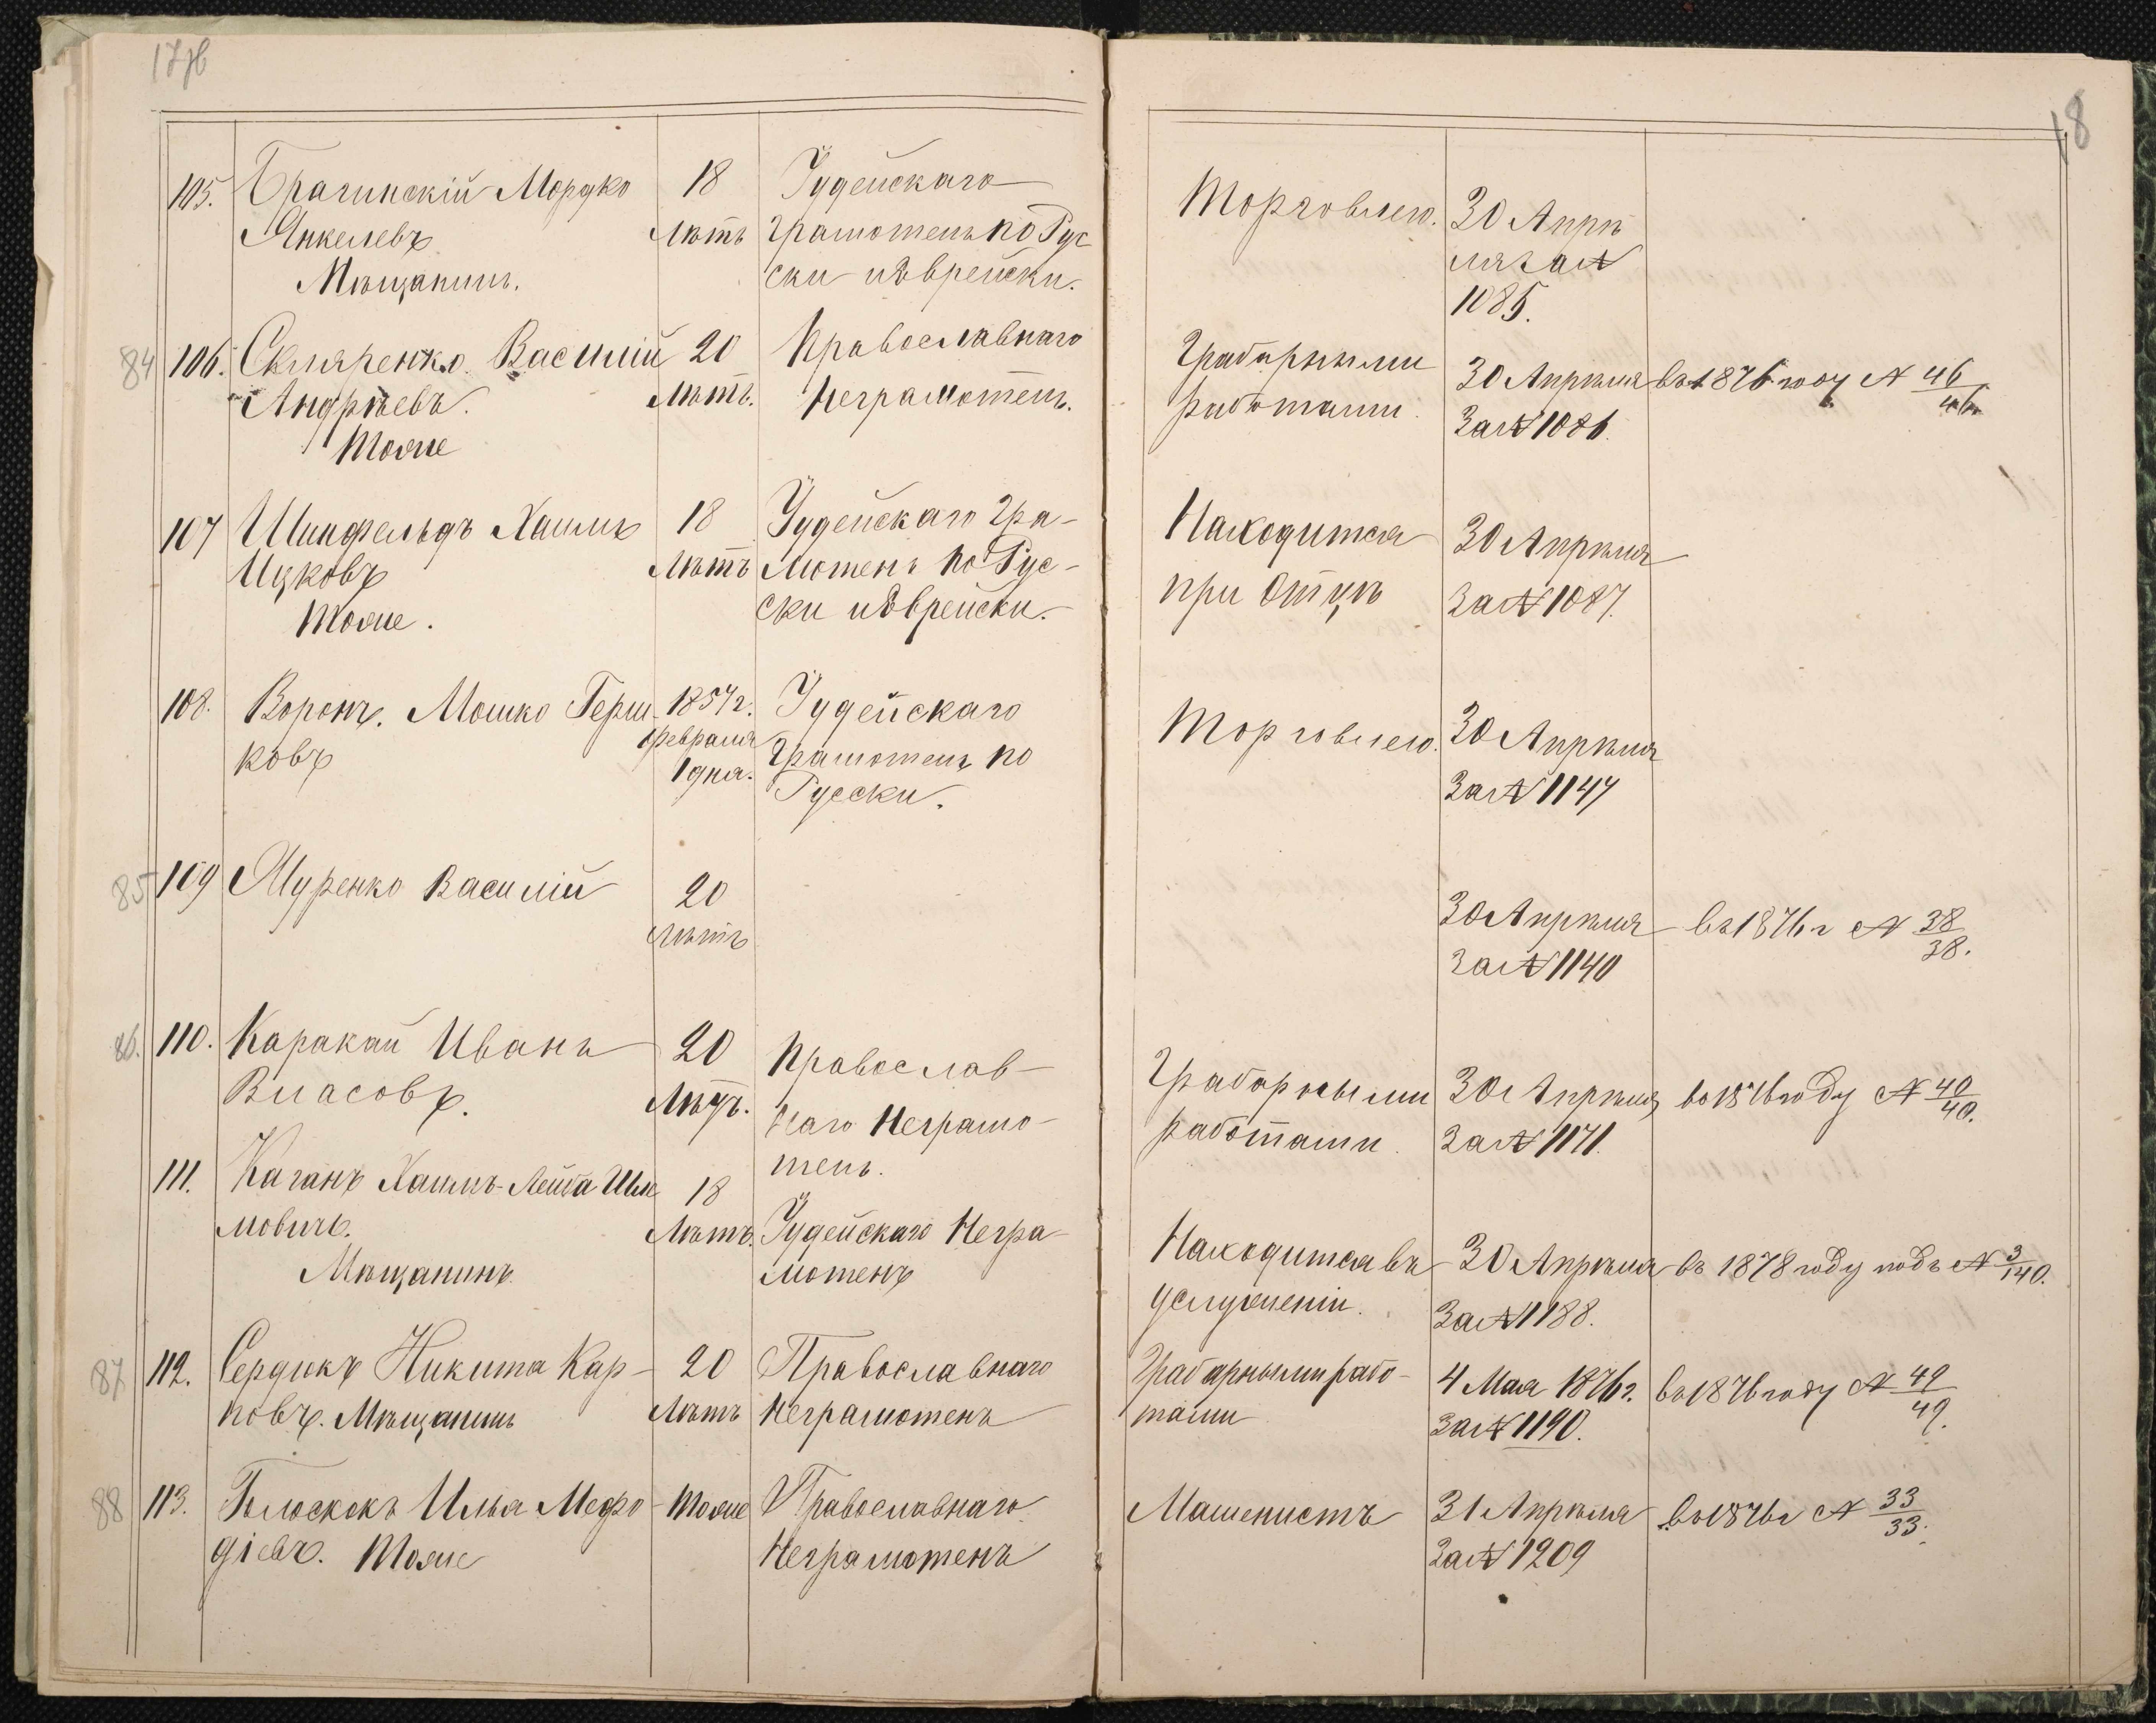 17об
105. Брагинскій Мордко 18 Іудейскаго
Янкелевъ лѣтъ грамотенъ по Рус
Мѣщанинъ. ски и Еврейски.
84 106. Скляренко Василій 20 Православнаго
Андрѣевъ. лѣтъ. неграмотенъ.
Тоже
107 Шинфельдъ Хаимъ 18 Іудейскаго гра-
Ицковъ лѣтъ мотенъ по Рус-
Тоже. ски и Еврейски.
108. Воронъ. Мошко Герш- 1857 г. Іудейскаго
ковъ февраля грамотенъ по
1 дня. Русски.
85 109 Муренко Василій 20
лѣтъ
86. 110. Каракай Иванъ 20 Православ-
Власовъ. лѣтъ. наго Неграмо-
тенъ.
111. Каганъ Хаимъ-Лейба 18
мовичъ. лѣтъ. Іудейскаго Негра-
Мѣщанинъ мотенъ
87 112. Сердюкъ Никита Кар- 20 Православнаго
повъ. Мѣщанинъ лѣтъ Неграмотенъ
88 113. Илья Мефо- Тоже Православнаго
діевъ. Тоже Неграмотенъ
18
Торговлею. 30 Апрѣ
ля за №
1085.
Грабарными 30 Апрѣля въ 1876 году № 46/46
работами. за № 1086.
Находится 30 Апрѣля
при Отцѣ за № 1087.
Торговлею. 30 Апрѣля
за № 1147
30 Апрѣля въ 1876 г № 38/38.
за № 1140
Грабарными 30 Апрѣля въ 1876 году № 40/40.
работами. за № 1171.
Находится въ 30 Апрѣля въ 1878 году подъ № 3/140.
услуженіи. за № 1188.
Грабарными рабо- 4 Мая 1876 г. въ 1876 году № 49/49.
тами за № 1190.
Машенистъ 31 Апрѣля въ 1876 г № 33/33.
за № 1209